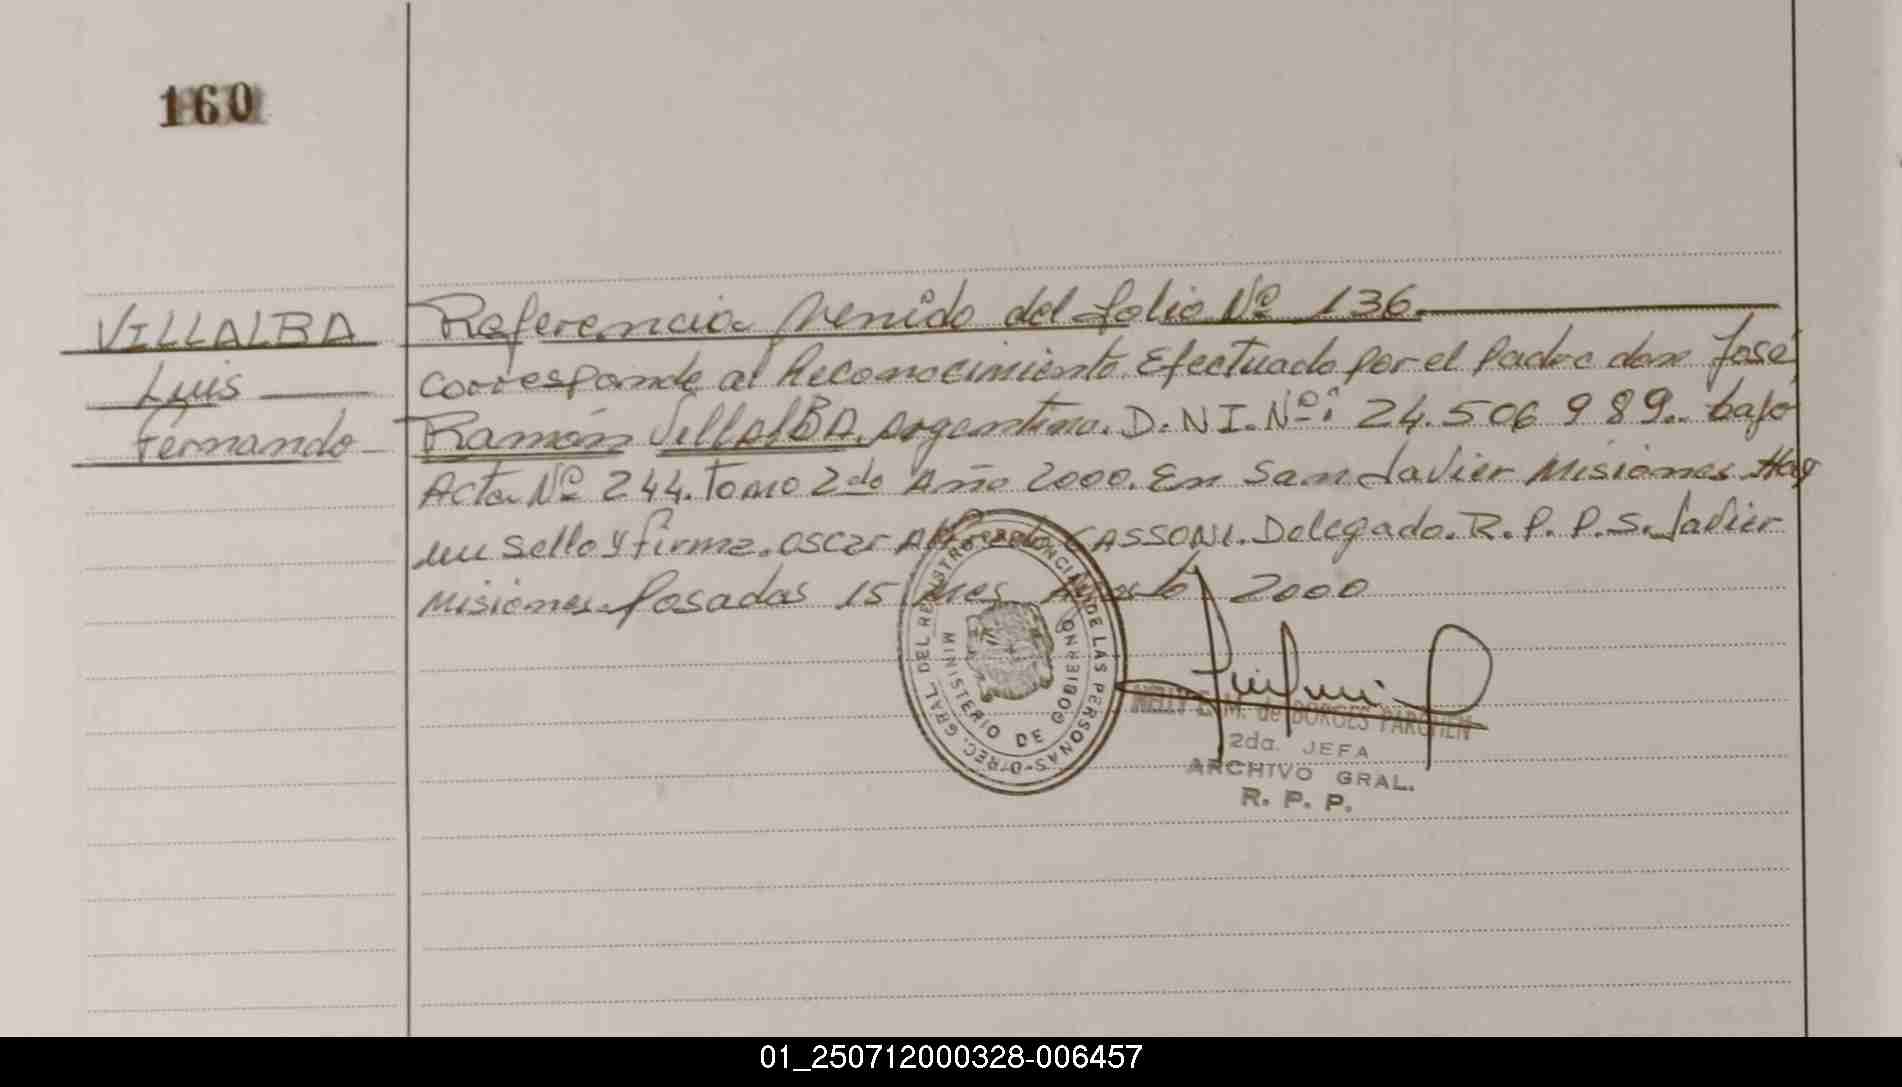 160
VILLALBA
Luis
Fernando
Referencia venido del folio Nº 136.
Corresponde al Reconocimiento Efectuado por el Padre don José
Ramón VillalBA, Argentino. D.N.I. Nº: 24.506.989.. bajo
Acta Nº 244. Tomo 2do Año 2000. En San Javier Misiones. Hay
un Sello y firma. Oscar CASSONI. Delegado. R.P.P.S. Javier
Misiones. Posadas 15 Mes Agosto 2000
DIREC. GRAL. DEL REGISTRO PROVINCIAL DE LAS PERSONAS
MINISTERIO DE GOBIERNO
NELLY E. M. de BORGES PARCHEN
2da. JEFA
ARCHIVO GRAL.
R. P. P.
01_250712000328-006457